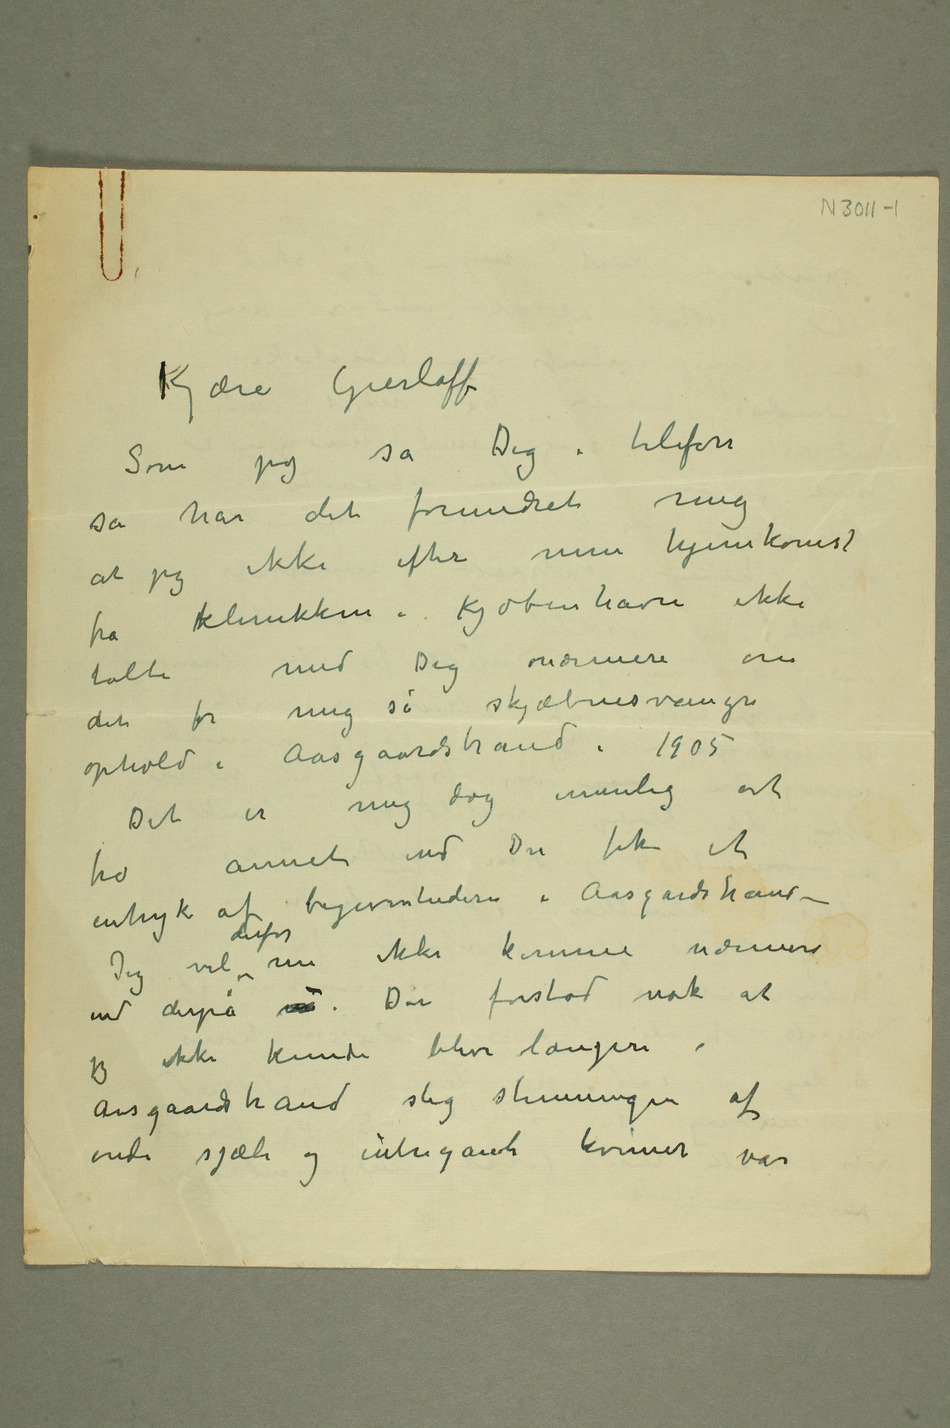 N 3011-1
Kjære Gierløff
Som jeg sa Dig i telefon
sa har det forundret mig
at jeg ikke efter min hjemkomst
fra klinikken i Kjøbenhavn ikke
talte med Dig nærmere om
det for mig så skjæbnesvangre
ophold i Aasgaardstrand i 1905
Det er mig dog umulig at
tro annet end Du fik et
intryk af begivenhedene i Aasgardstrand –
Jeg vil derfor nu ikke komme nærmere
ind derpå. Du forstod nok at
jeg ikke kunde blive længere i
Aasgaardstrand slig stemningen af
onde sjæle og intrigante kvinner var